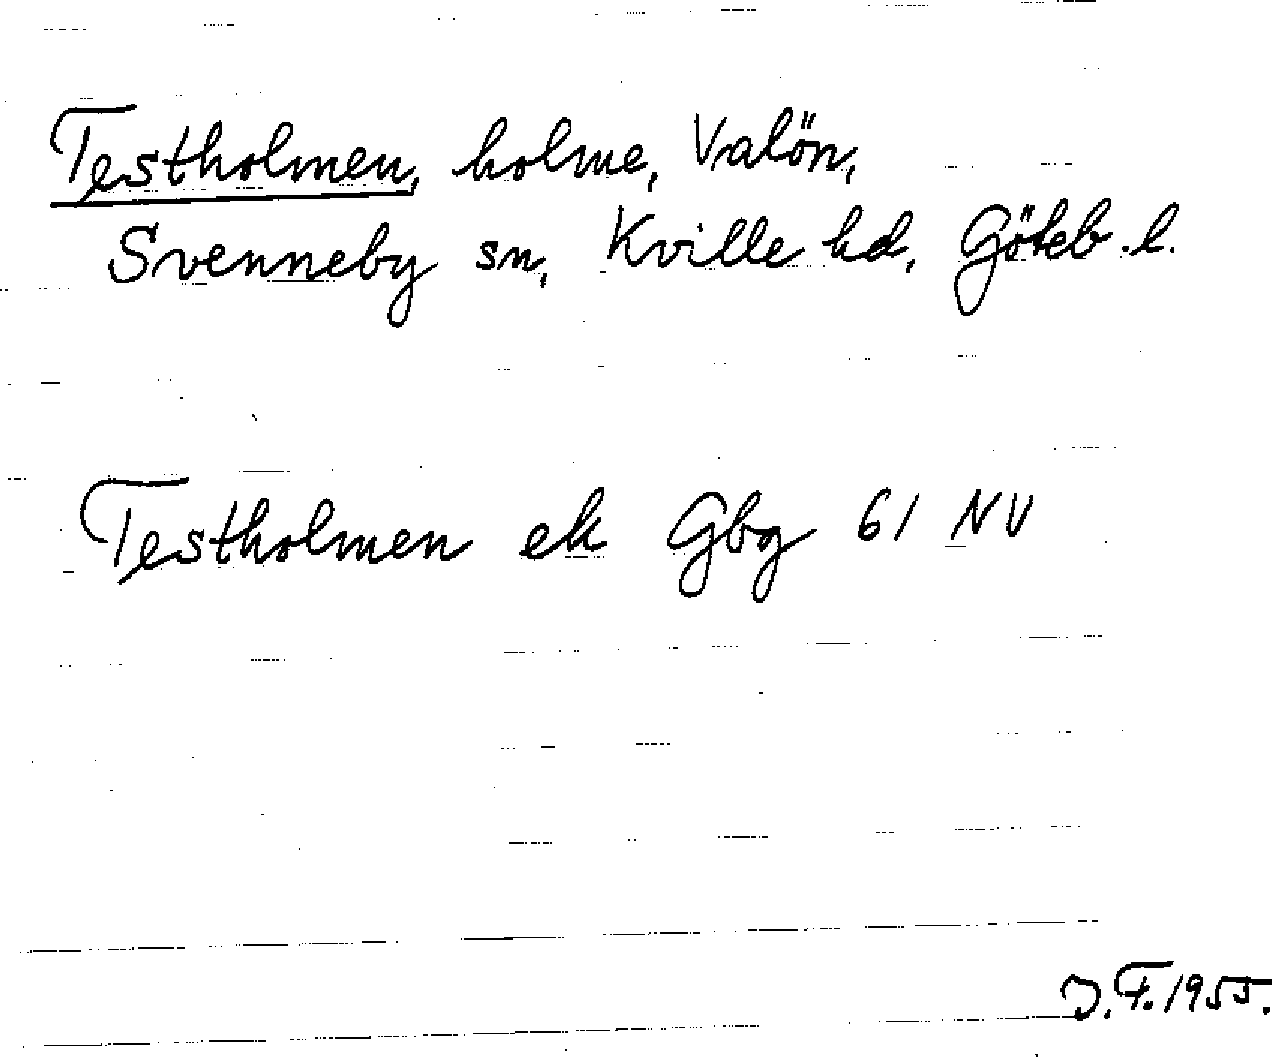 Testholmen, holme, Valön,
Svenneby sn, Kville hd, Göteb. l.
Testholmen ek Gbg 61 NV
J.F. 1955.